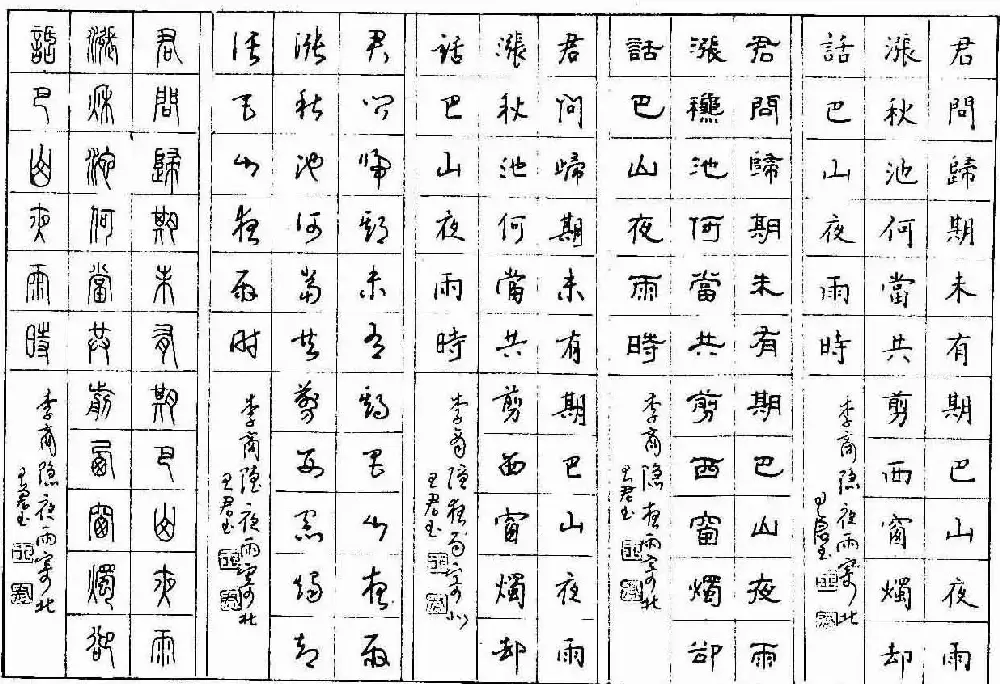 君問歸期未有期巴山夜雨
漲秋池何當共剪西窗燭却
話巴山夜雨時
李商隐夜雨寄北
王君书
君問歸期未有期巴山夜雨
漲穐池何當共剪西窗燭卻
話巴山夜雨時
李商隐夜雨寄北
王君书
君問歸期未有期巴山夜雨
漲秋池何當共剪西窗燭却
話巴山夜雨時
李商隐夜雨寄北
王君书
君問歸期未有期巴山夜雨
漲秋池何當共剪西窗燭却
話巴山夜雨時
李商隐夜雨寄北
王君书
君問歸期未有期巴山夜雨
漲秋池何當共剪西窗燭卻
話巴山夜雨時
李商隐夜雨寄北
王君书